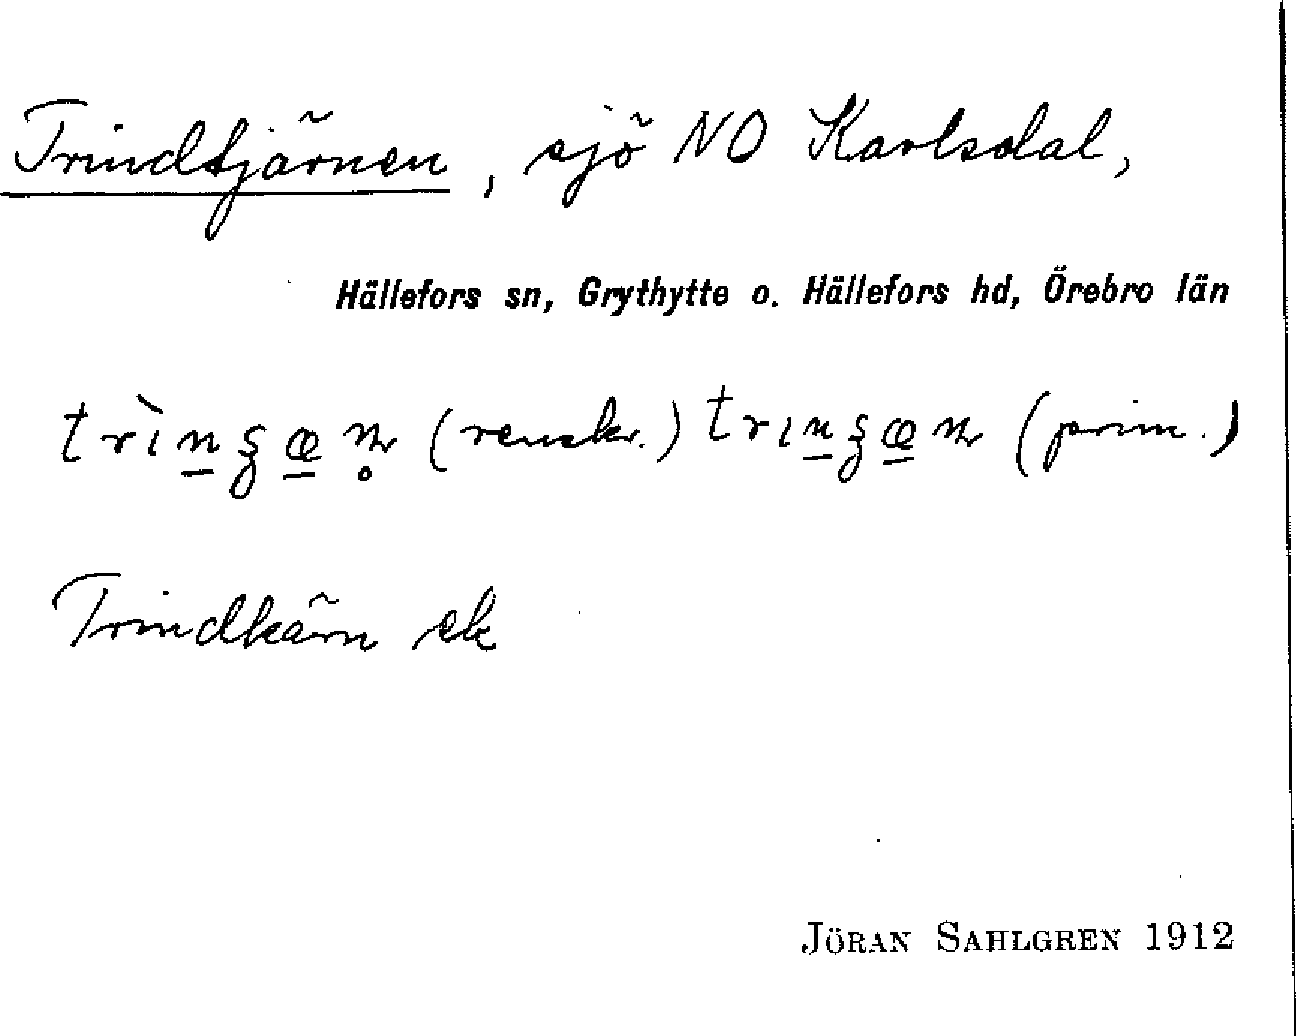 Trindtjärnen, sjö NO Karlsdal,
Hällefors sn, Grythytte o. Hällefors hd, Örebro län
trìn̲ʂæ̲n̥ (renskr.) trin̲ʂæ̲n (prim.)
Trindkärn ek
JÖRAN SAHLGREN 1912